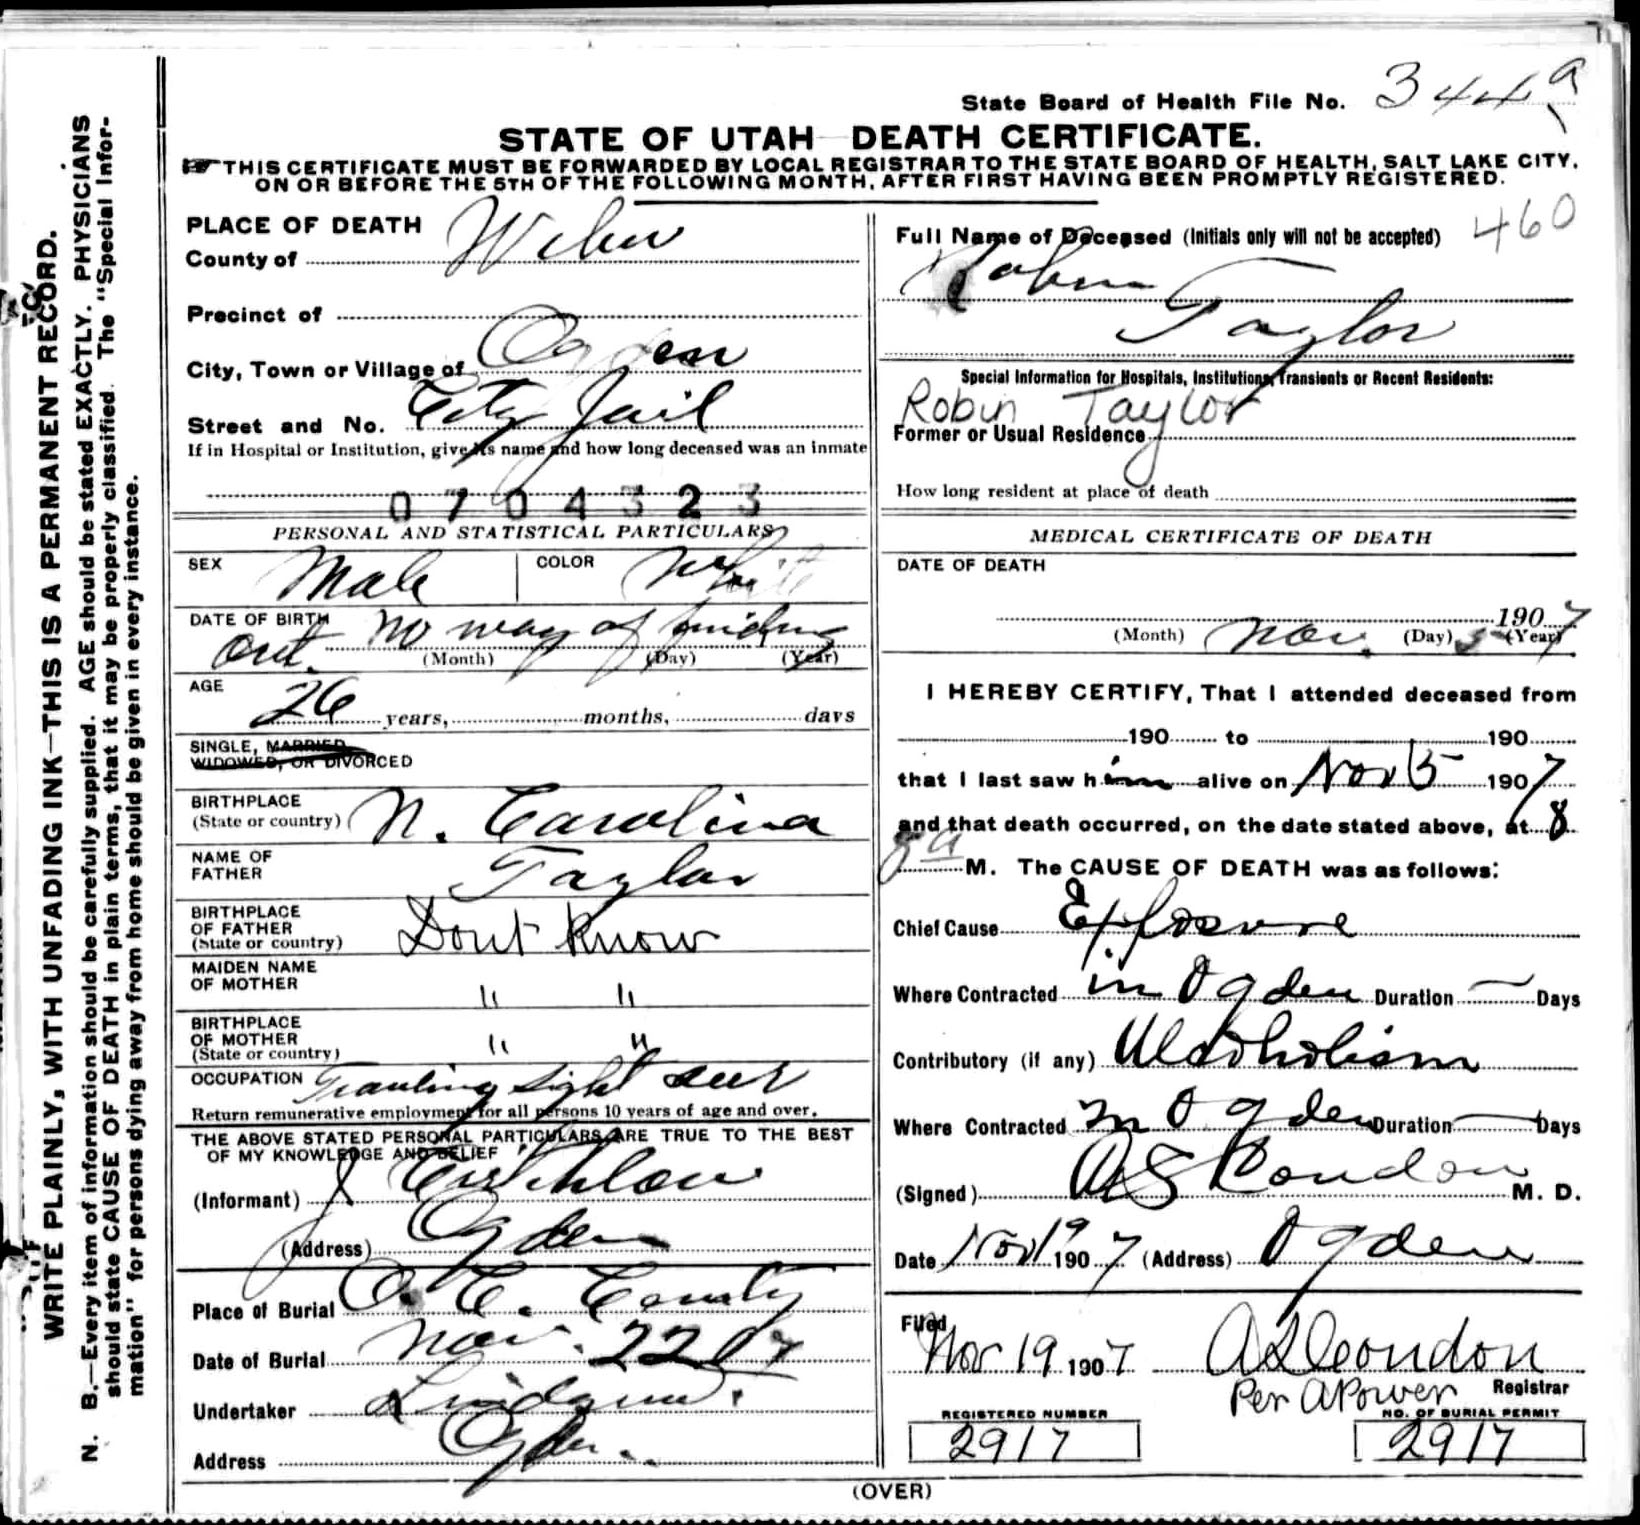 State Board of Health File No. 344 a
STATE OF UTAH DEATH CERTIFICATE.
THIS CERTIFICATE MUST BE FORWARDED BY LOCAL REGISTRAR TO THE STATE BOARD OF HEALTH, SALT LAKE CITY,
ON OR BEFORE THE 5TH OF THE FOLLOWING MONTH, AFTER FIRST HAVING BEEN PROMPTLY REGISTERED.
WRITE PLAINLY, WITH UNFADING INK—THIS IS A PERMANENT RECORD.
N. B.—Every item of information should be carefully supplied. AGE should be stated EXACTLY. PHYSICIANS
should state CAUSE OF DEATH in plain terms, that it may be properly classified. The "Special Infor-
mation" for persons dying away from home should be given in every instance.
PLACE OF DEATH
County of Weber
Precinct of
City, Town or Village of Ogden
Street and No. City Jail
If in Hospital or Institution, give its name and how long deceased was an inmate
0704323
PERSONAL AND STATISTICAL PARTICULARS
SEX Male COLOR White
DATE OF BIRTH no way of finding
out.
(Month) (Day) (Year)
AGE
26 years, months, days
SINGLE, MARRIED
WIDOWED, OR DIVORCED
BIRTHPLACE
(State or country) N. Carolina
NAME OF
FATHER Taylor
BIRTHPLACE
OF FATHER
(State or country) Dont Know
MAIDEN NAME
OF MOTHER " "
BIRTHPLACE
OF MOTHER
(State or country) " "
OCCUPATION Traveling Sight seer
Return remunerative employment for all persons 10 years of age and over.
THE ABOVE STATED PERSONAL PARTICULARS ARE TRUE TO THE BEST
OF MY KNOWLEDGE AND BELIEF
(Informant) J
(Address) Ogden
Place of Burial O. C. County
Date of Burial Nov. 22 07
Undertaker
Address Ogden.
Full Name of Deceased (Initials only will not be accepted) 460
Robin
Taylor
Special Information for Hospitals, Institutions, Transients or Recent Residents:
Robin Taylor
Former or Usual Residence
How long resident at place of death
MEDICAL CERTIFICATE OF DEATH
DATE OF DEATH
1907
(Month) Nov. (Day) 5 (Year) 7
I HEREBY CERTIFY, That I attended deceased from
190 to 190
that I last saw him alive on Nov 5 1907
and that death occurred, on the date stated above, at 8
8 a M. The CAUSE OF DEATH was as follows:
Chief Cause Exposure
Where Contracted in Ogden Duration — Days
Contributory (if any) Alcoholism
Where Contracted in Ogden Duration — Days
(Signed) A S Condon M. D.
Date Nov 19 1907 (Address) Ogden
Filed
Nov 19 1907 A S Condon
Per A Power Registrar
REGISTERED NUMBER NO. OF BURIAL PERMIT
2917 2917
(OVER)